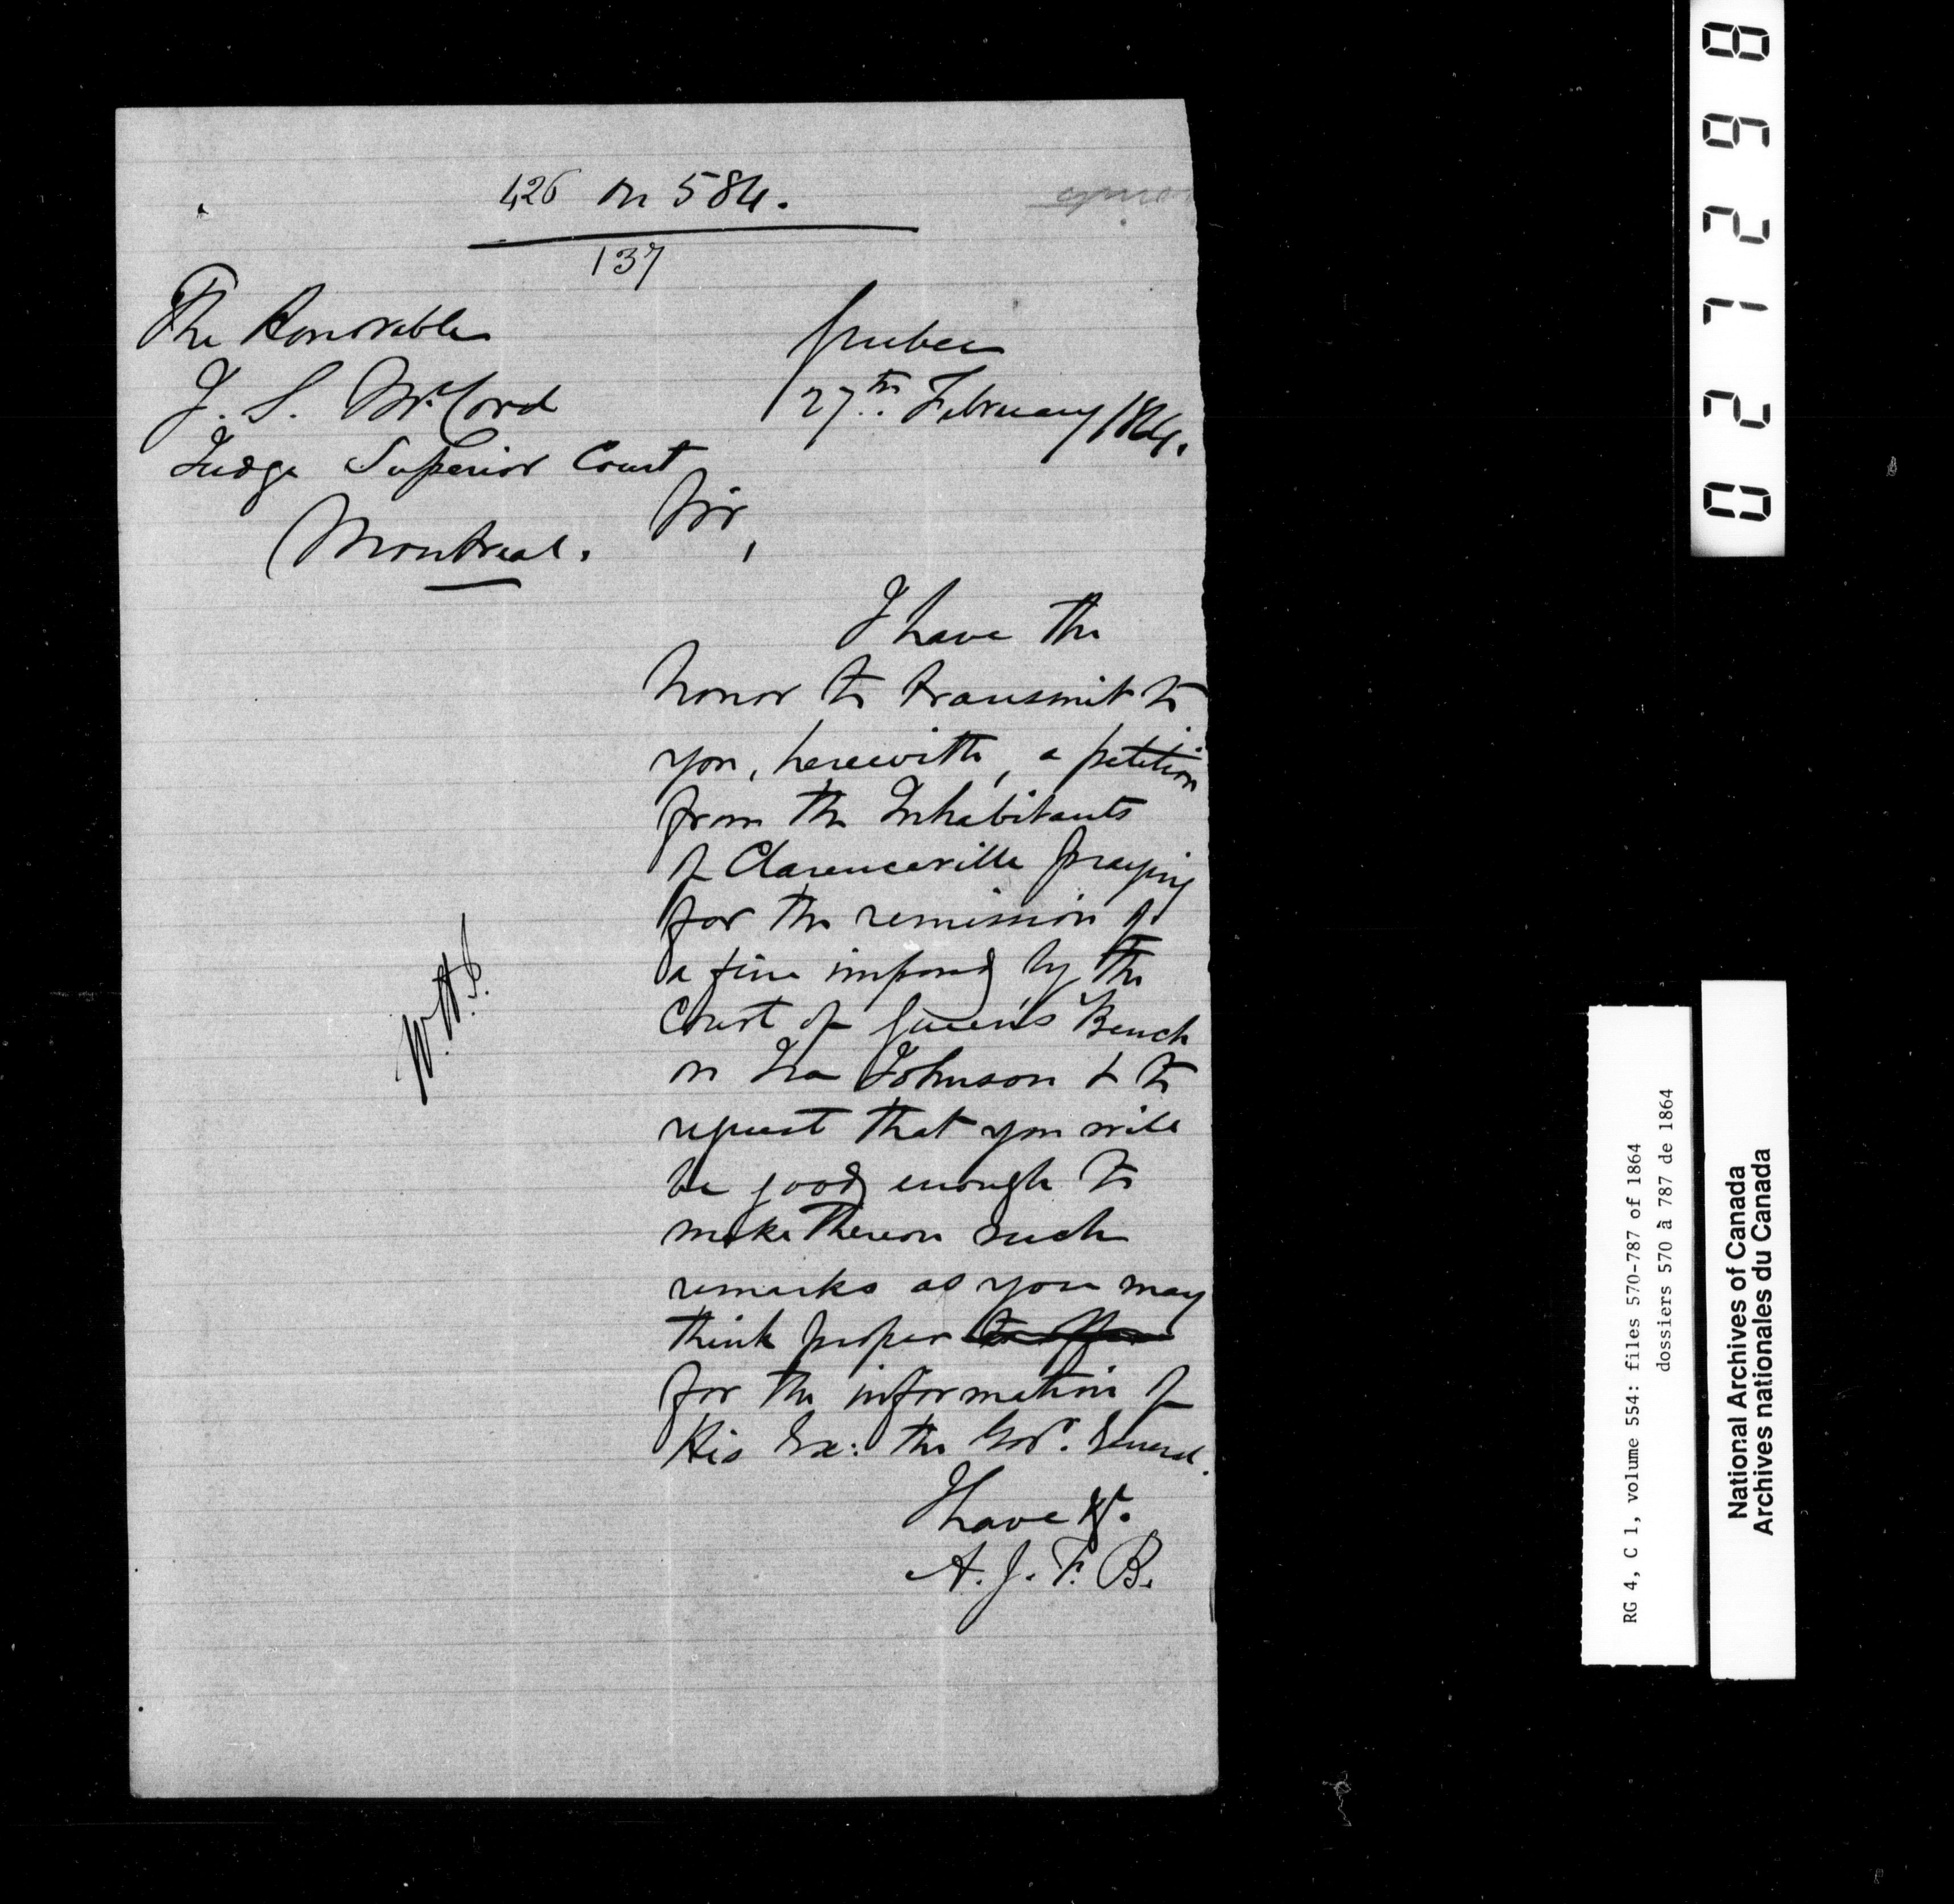 426 on 584.
137
The Honorable
J. S. McCord
Judge Superior Court
Montreal.
Quebec
27th February 1864.
Sir,
I have the
honor to transmit to
you, herewith, a petition
from the Inhabitants
of Clarenceville praying
for the remission of
a fine imposed by the
Court of Queen's Bench
on Ira Johnson & to
request that you will
be good enough to
make thereon such
remarks as you may
think proper to offer
for the information of
His Ex: the Govr. General.
I have &.
A. J. F. B.
W.H.J.
022 1 2 9 8
RG 4, C 1, volume 554: files 570-787 of 1864
dossiers 570 à 787 de 1864
National Archives of Canada
Archives nationales du Canada